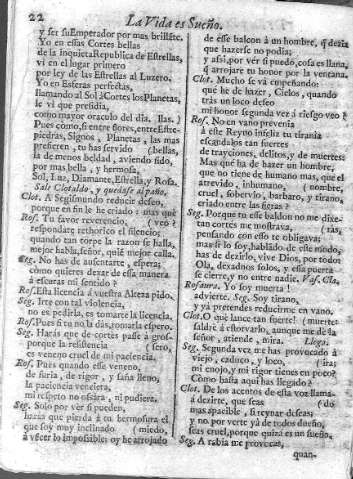 22 La Vida es Sueño.
y ser su Emperador por mas brillãte.
Yo en essas Cortes bellas
de la inquieta Republica de Estrellas,
vi en el lugar primero
por ley de las Estrellas al Luzero.
Yo en Esferas perfectas,
llamando al Sol à Cortes los Planetas,
le vi que presidia,
como mayor oraculo del dia. (llas.
Pues cómo, si entre flores, entre Estre-
piedras, Signos, Planetas, las mas
prefieren, tu has servido (bellas,
la de menos beldad, aviendo sido,
por mas bella, y hermosa,
Sol, Luz, Diamante, Estrella, y Rosa.
Sale Clotaldo, y quedase al paño.
Clot. A Segismundo reducir deseo,
porque en fin le he criado: mas què
Ros. Tu favor reverencio, (veo?
respondate rethorico el silencio;
quando tan torpe la razon se halla,
mejor habla, señor, quiē mejor calla.
Seg. No has de ausentarte, espera;
cómo quieres dexar de essa manera
à escuras mi sentido?
Ros. Esta licencia à vuestra Alteza pido.
Seg. Irte con tal violencia,
no es pedirla, es tomarte la licencia.
Ros. Pues si tu no la dàs, tomarla espero.
Seg. Haràs que de cortès passe à gros-
porque la resistencia (sero,
es veneno cruel de mi paciencia.
Ros. Pues quando esse veneno,
de furia, de rigor, y saña lleno,
la paciencia venciera,
mi respeto no osàra, ni pudiera.
Seg. Solo por ver si pueden,
haràs que pierda à tu hermosura el
que soy muy inclinado (miedo,
à vècer lo impossible; oy he arrojado
de esse balcon à un hombre, q̃ dezia
que hazerse no podia;
y assi, por ver si puedo, cosa es llana,
q̃ arrojarè tu honor por la ventana.
Clot. Mucho se và empeñando:
què he de hazer, Cielos, quando
tràs un loco deseo
mi honor segunda vez à riesgo veo?
Ros. No en vano prevenia
à este Reyno infeliz tu tirania
escandalos tan fuertes
de trayciones, delitos, y de muertes:
Mas què ha de hazer un hombre,
que no tiene de humano mas, que el
atrevido, inhumano, (nombre,
cruel, sobervio, barbaro, y tirano,
criado entre las fieras?
Seg. Porque tu esse baldon no me dixe-
tan cortès me mostrava, (ràs,
pensando con esso te obligava;
mas si lo soy, hablado de esse modo,
has de dezirlo, vive Dios, por todo:
Ola, dexadnos solos, y essa puerta
se cierre, y no entre nadie. Vas. Cla.
Rosaura. Yo soy muerta!
advierte. Seg. Soy tirano,
y yà pretendes reducirme en vano.
Clot. O què lance tan fuerte! (muerte:
saldrè à estorvarlo, aunque me dè la
señor, atiende, mira. Llega.
Seg. Segunda vez me has provocado à
viejo, caduco, y loco, (ira;
mi enojo, y mi rigor tienes en poco?
Cómo hasta aqui has llegado?
Clot. De los acentos de esta voz llama-
à dezirte, que seas (do
mas apacible, si reynar deseas;
y no, por verte yà de todos dueño,
seas cruel, porque quizà es un sueño.
Seg. A rabia me provocas,
quan-